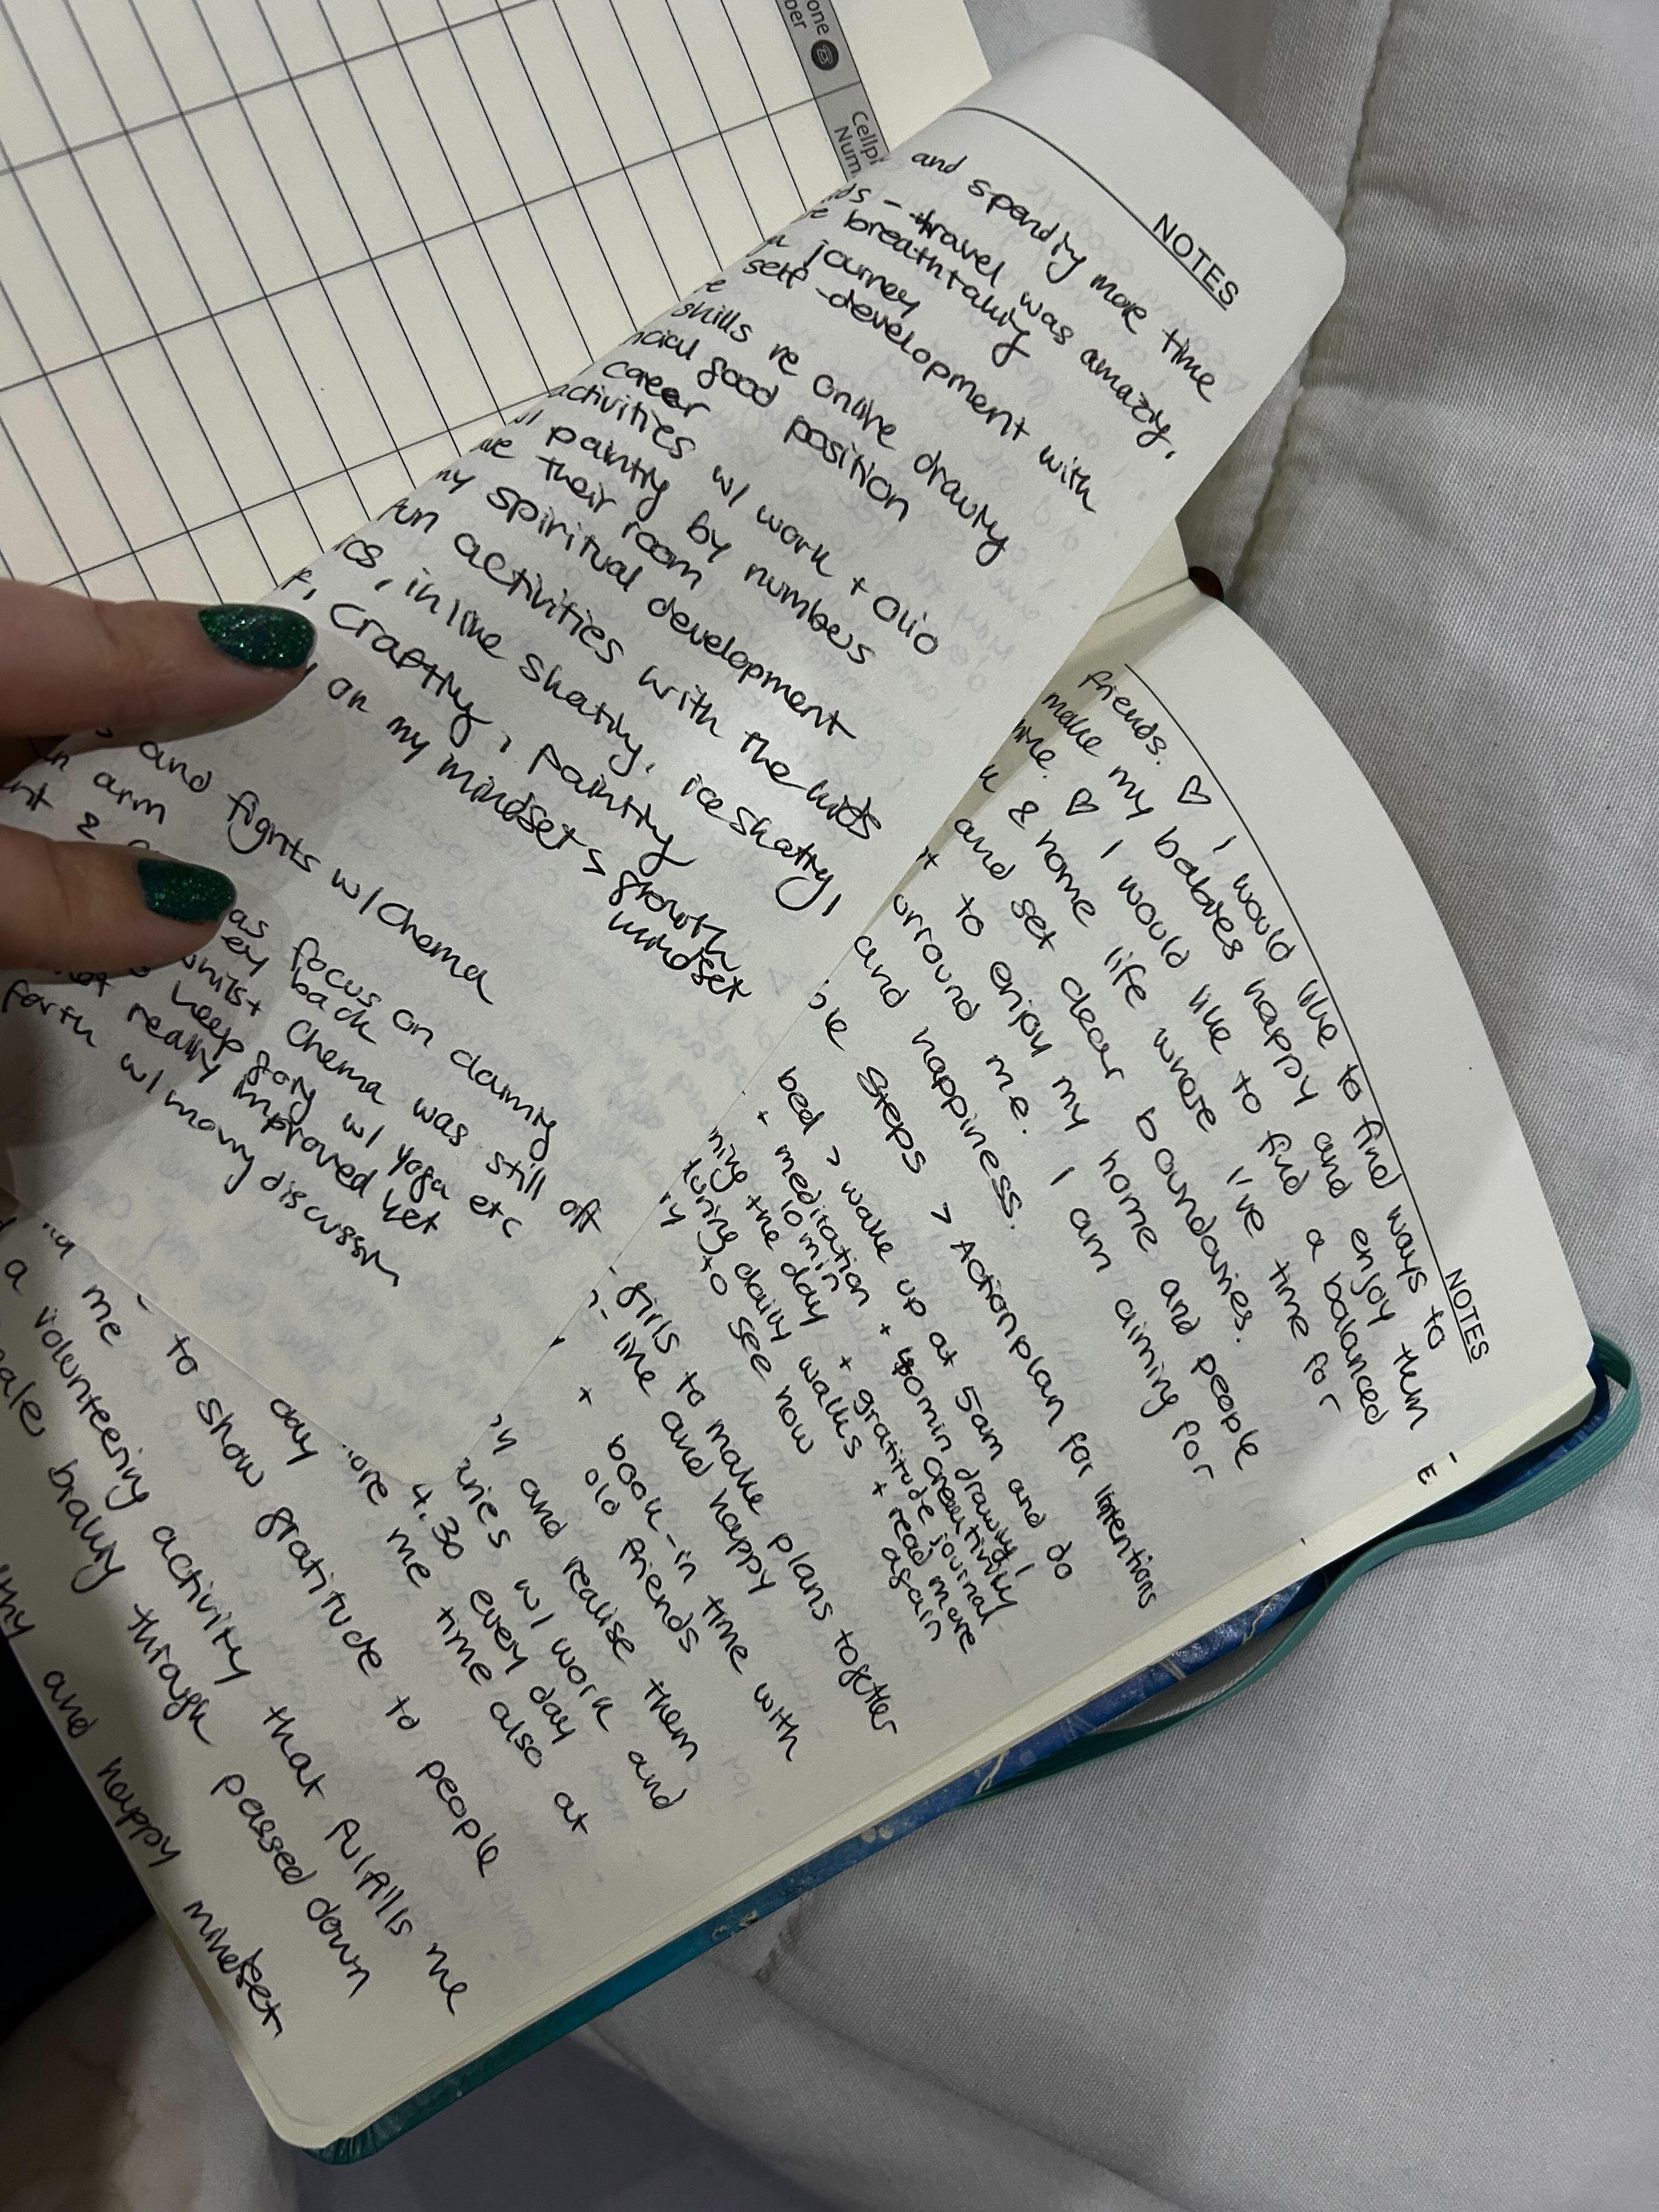 one
ber
Cellp
Num
NOTES
and spending more time
- travel was amazing,
breathtaking
journey
self-development with
skills re online drawing
good position
career
activities w/ work + Olio
painting by numbers
their room
my spiritual development
fun activities with the kids
, inline skating, ice skating,
, Crafting, painting
on my mindset > growth
mindset
and fights w/ Chema
arm
&
as focus on claming
ey back
whilst Chema was still off
keep going w/ yoga etc
not really improved yet
forth w/ many discussion
NOTES
friends. ♡ I would like to find ways to
make my babies happy and enjoy them
me. ♡ I would like to find a balanced
& home life where I've time for
and set clear boundaries.
to enjoy my home and people
arround me. I am aiming for
and happiness.
Steps > Actionplan for intentions
bed > wake up at 5am and do
+ meditation + 40min drawing /
10 min creativity
the day + gratitude journal
during daily walks + read more
to see how again
girls to make plans together
line and happy
+ book-in time with
old friends
and realise them
w/ work and
4.30 every day
me time also at
day
to show gratitude to people
me
a volunteering activity that fulfills me
braking through passed down
and happy mindset
E